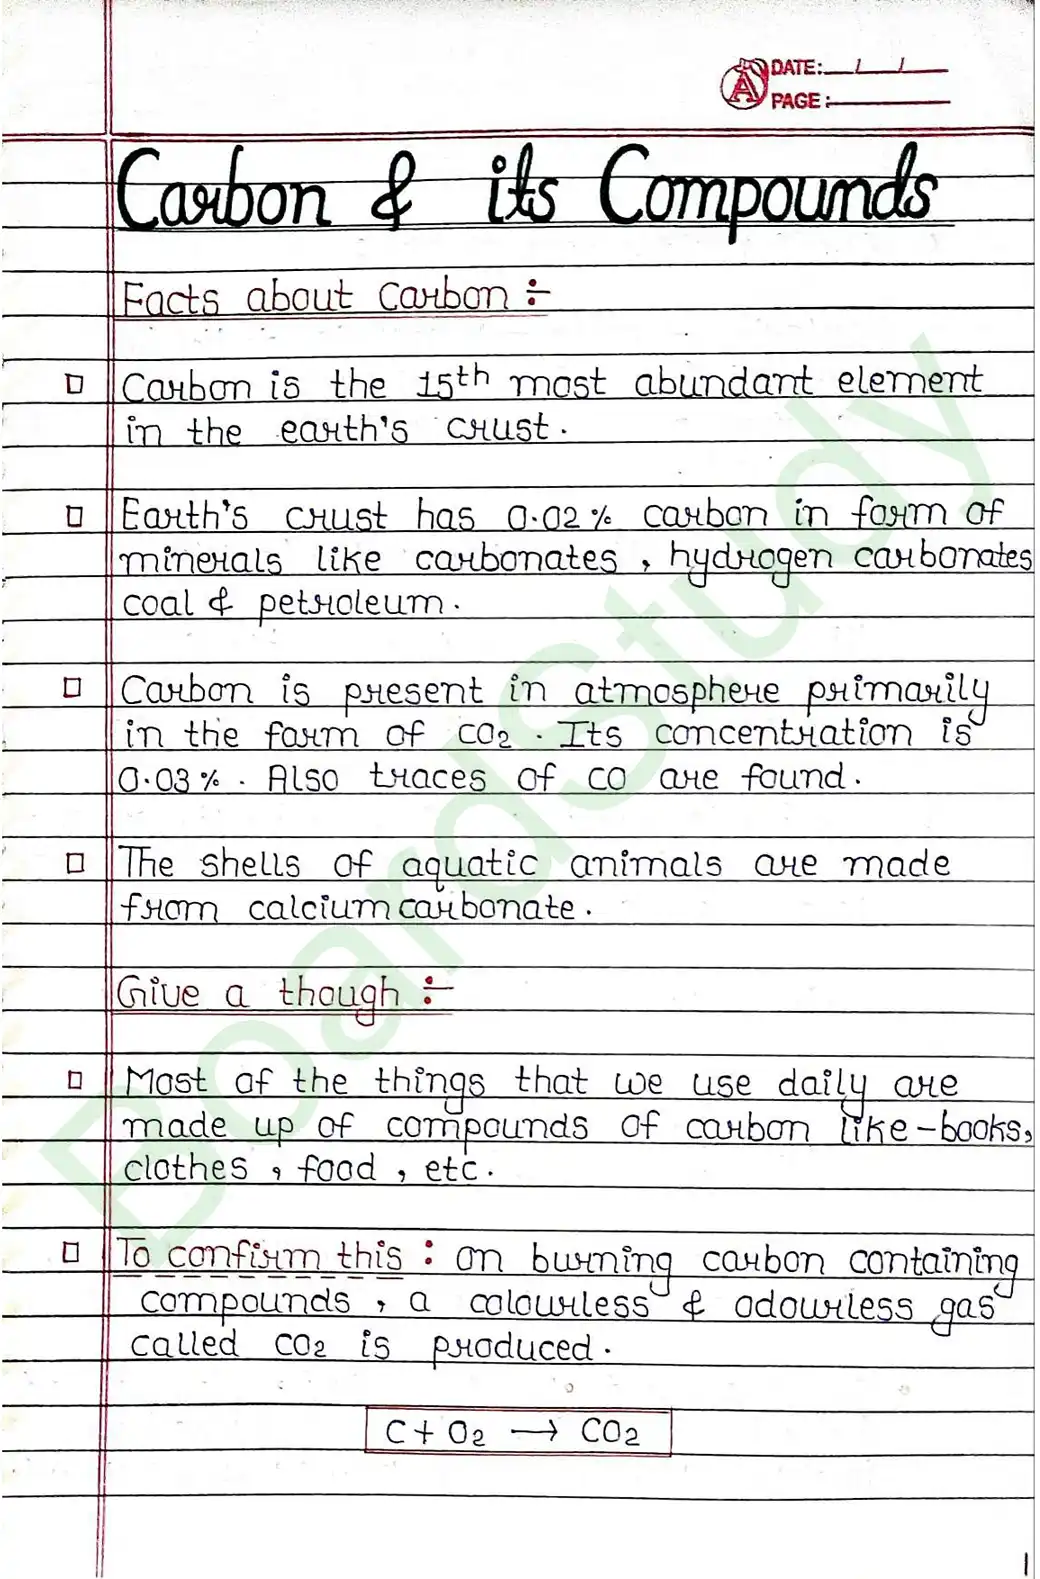 DATE: / /
PAGE:
Carbon & its Compounds
Facts about Carbon :-
Carbon is the 15th most abundant element
in the earth's crust.
Earth's crust has 0.02% carbon in form of
minerals like carbonates, hydrogen carbonates
coal & petroleum.
Carbon is present in atmosphere primarily
in the form of CO2. Its concentration is
0.03%. Also traces of CO are found.
The shells of aquatic animals are made
from calcium carbonate.
Give a though :-
Most of the things that we use daily are
made up of compounds of carbon like - books,
clothes, food, etc.
To confirm this : on burning carbon containing
compounds, a colourless & odourless gas
called CO2 is produced.
C + O2 → CO2
1
BoardStudy